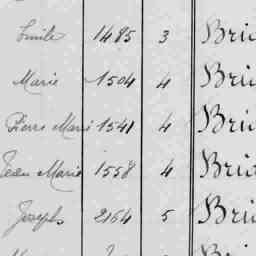 Emile 1485 3 Bri
Marie 1504 4 Bri
Pierre Marie 1541 4 Bri
Jean Marie 1558 4 Bri
Joseph 2164 5 Bri